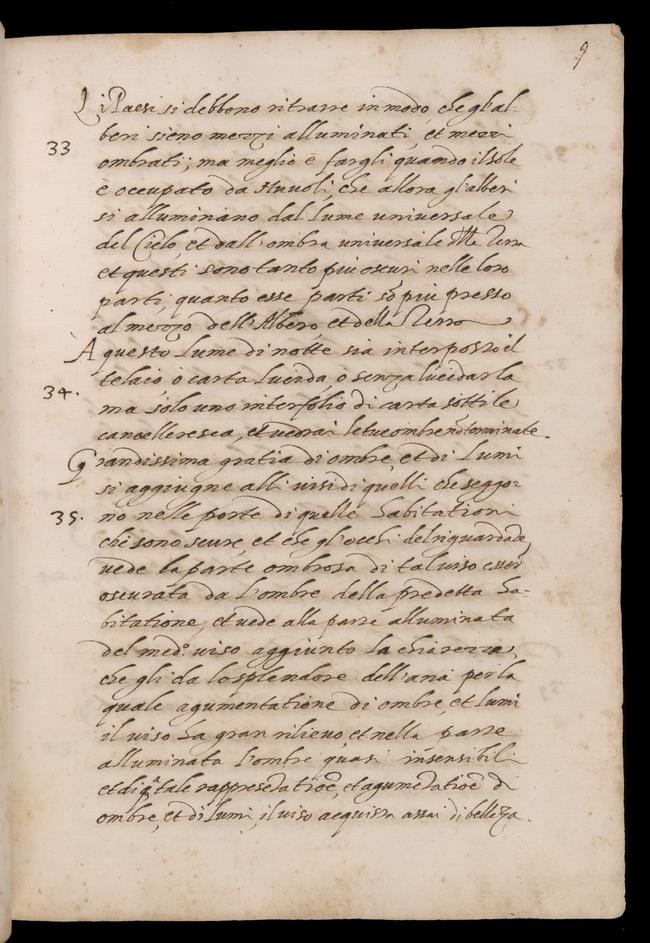 9
Li Paesi si debbono ritrarre in modo, che gl'al-
33
beri sieno mezzi alluminati, et mezzi
ombrati; ma meglio è fargli quando il Sole
è occupato da Nuvoli, che allora gl'alberi
si alluminano dal lume universale
del Cielo, et dall'ombra universale della Terra
et questi sono tanto più oscuri nelle loro
parti, quanto esse parti sō più presso
al mezzo dell'Albero, et della Terra
A questo lume di notte sia interposto il
telaio, o carta lucida, o senza lucidarla
34.
ma solo uno interfolio di carta sottile
cancelleresca, et vedrai le tue ombre nō terminate.
Grandissima gratia di ombre, et di lumi
si aggiugne alli visi di quelli che seggo-
35.
no nelle porte di quelle habitationi
che sono scure, et che gl'occhi del riguardāte
vede la parte ombrosa di tal viso esser
oscurata da l'ombre della predetta ha-
bitatione, et vede alla parte alluminata
del med.º viso aggiunto la chiarezza,
che gli da lo splendore dell'aria per la
quale agumentatione di ombre, et lumi
il viso ha gran rilievo, et nella parte
alluminata l'ombre quasi insensibili
et di q̄tale rappresētatiōe, et agumētatiōe di
ombre, et di lumi, il viso acquista assai di bellezza.